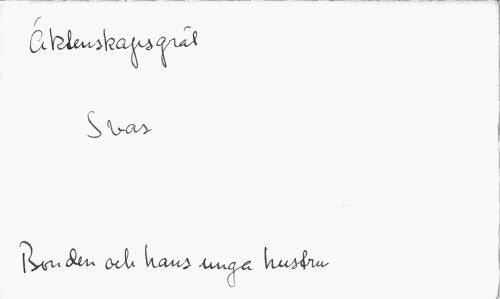 Äktenskapsgräl
Svar
Bonden och hans unga hustru